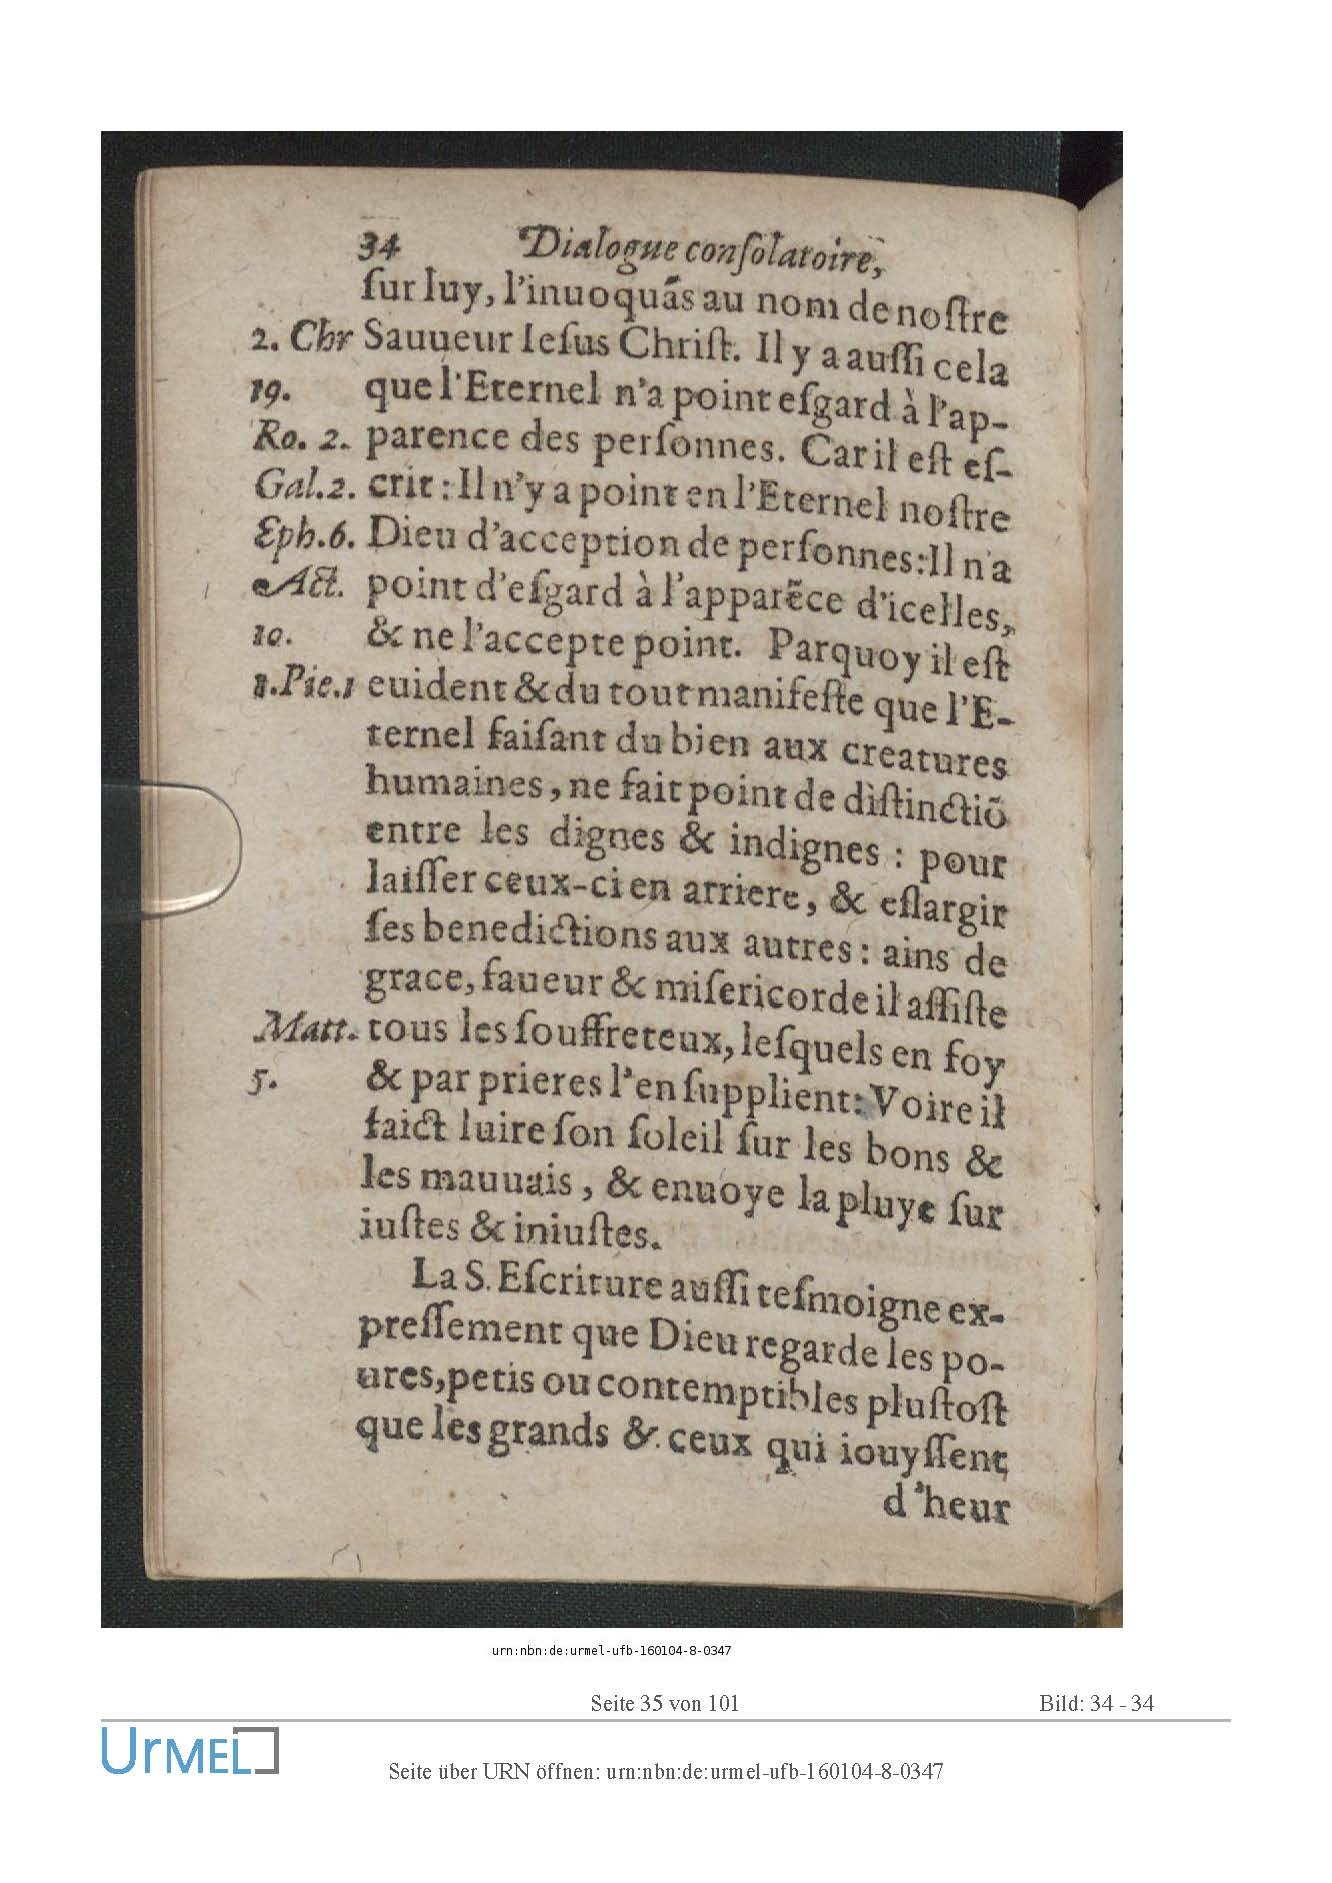 34 Dialogue conſolatoire,
ſur luy, l'inuoquãs au nom de noſtre
2. Chr Sauueur Ieſus Chriſt. Il y a auſſi cela
19. que l'Eternel n'a point eſgard à l'ap-
Ro. 2. parence des perſonnes. Car il eſt eſ-
Gal.2. crit : Il n'y a point en l'Eternel noſtre
Eph.6. Dieu d'acception de perſonnes: Il n'a
Act. point d'eſgard à l'apparẽce d'icelles,
10. & ne l'accepte point. Parquoy il eſt
1.Pie.1 euident & du tout manifeſte que l'E-
ternel faiſant du bien aux creatures
humaines, ne fait point de diſtinctiõ
entre les dignes & indignes : pour
laiſſer ceux-ci en arriere, & eſlargir
ſes benedictions aux autres : ains de
grace, faueur & miſericorde il aſſiſte
Matt. tous les ſouffreteux, leſquels en foy
5. & par prieres l'en ſupplient: Voire il
faict luire ſon ſoleil ſur les bons &
les mauuais, & enuoye la pluye ſur
iuſtes & iniuſtes.
La S. Eſcriture auſſi teſmoigne ex-
preſſement que Dieu regarde les po-
ures, petis ou contemptibles pluſtoſt
que les grands & ceux qui iouyſſent
d'heur
urn:nbn:de:urmel-ufb-160104-8-0347
Seite 35 von 101 Bild: 34 - 34
UrMEL
Seite über URN öffnen: urn:nbn:de:urmel-ufb-160104-8-0347